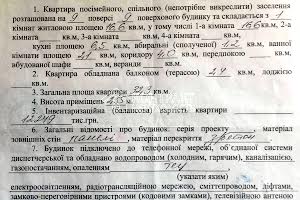 1. Квартира посімейного, спільного (непотрібне викреслити) заселення
розташована на 9 поверсі 9 поверхового будинку та складається з 1
кімнат житловою площею 16,6 кв.м, у тому числі 1-а кімната 16,6 кв.м, 2-а
кімната кв.м, 3-а кімната кв.м, 4-а кімната кв.м,
кухні площею 6,5 кв.м, вбиральні (сполученої) 1,2 кв.м, ванної
кімнати площею 2,1 кв.м, коридору 4,0 кв.м, передпокою кв.м,
вбудованої шафи кв.м, веранди кв.м.
2. Квартира обладнана балконом (терасою) кв.м, лоджією
кв.м.
3. Загальна площа квартири кв.м.
4. Висота приміщень кв.м.
5. Інвентаризаційна (балансова) вартість квартири
тис.грн.
6. Загальні відомості про будинок: серія проекту , матеріал
зовнішніх стін панелі, матеріал перекриття
7. Будинок підключено до телефонної мережі, об'єднаної системи
диспетчерської та обладнано водопроводом (холодним, гарячим), каналізацією,
газопостачанням, опаленням
(указати яким)
електроосвітленням, радіотрансляційною мережею, сміттєпроводом, ліфтами,
замково-переговорними пристроями (кодовими замками), телевізійною антеною